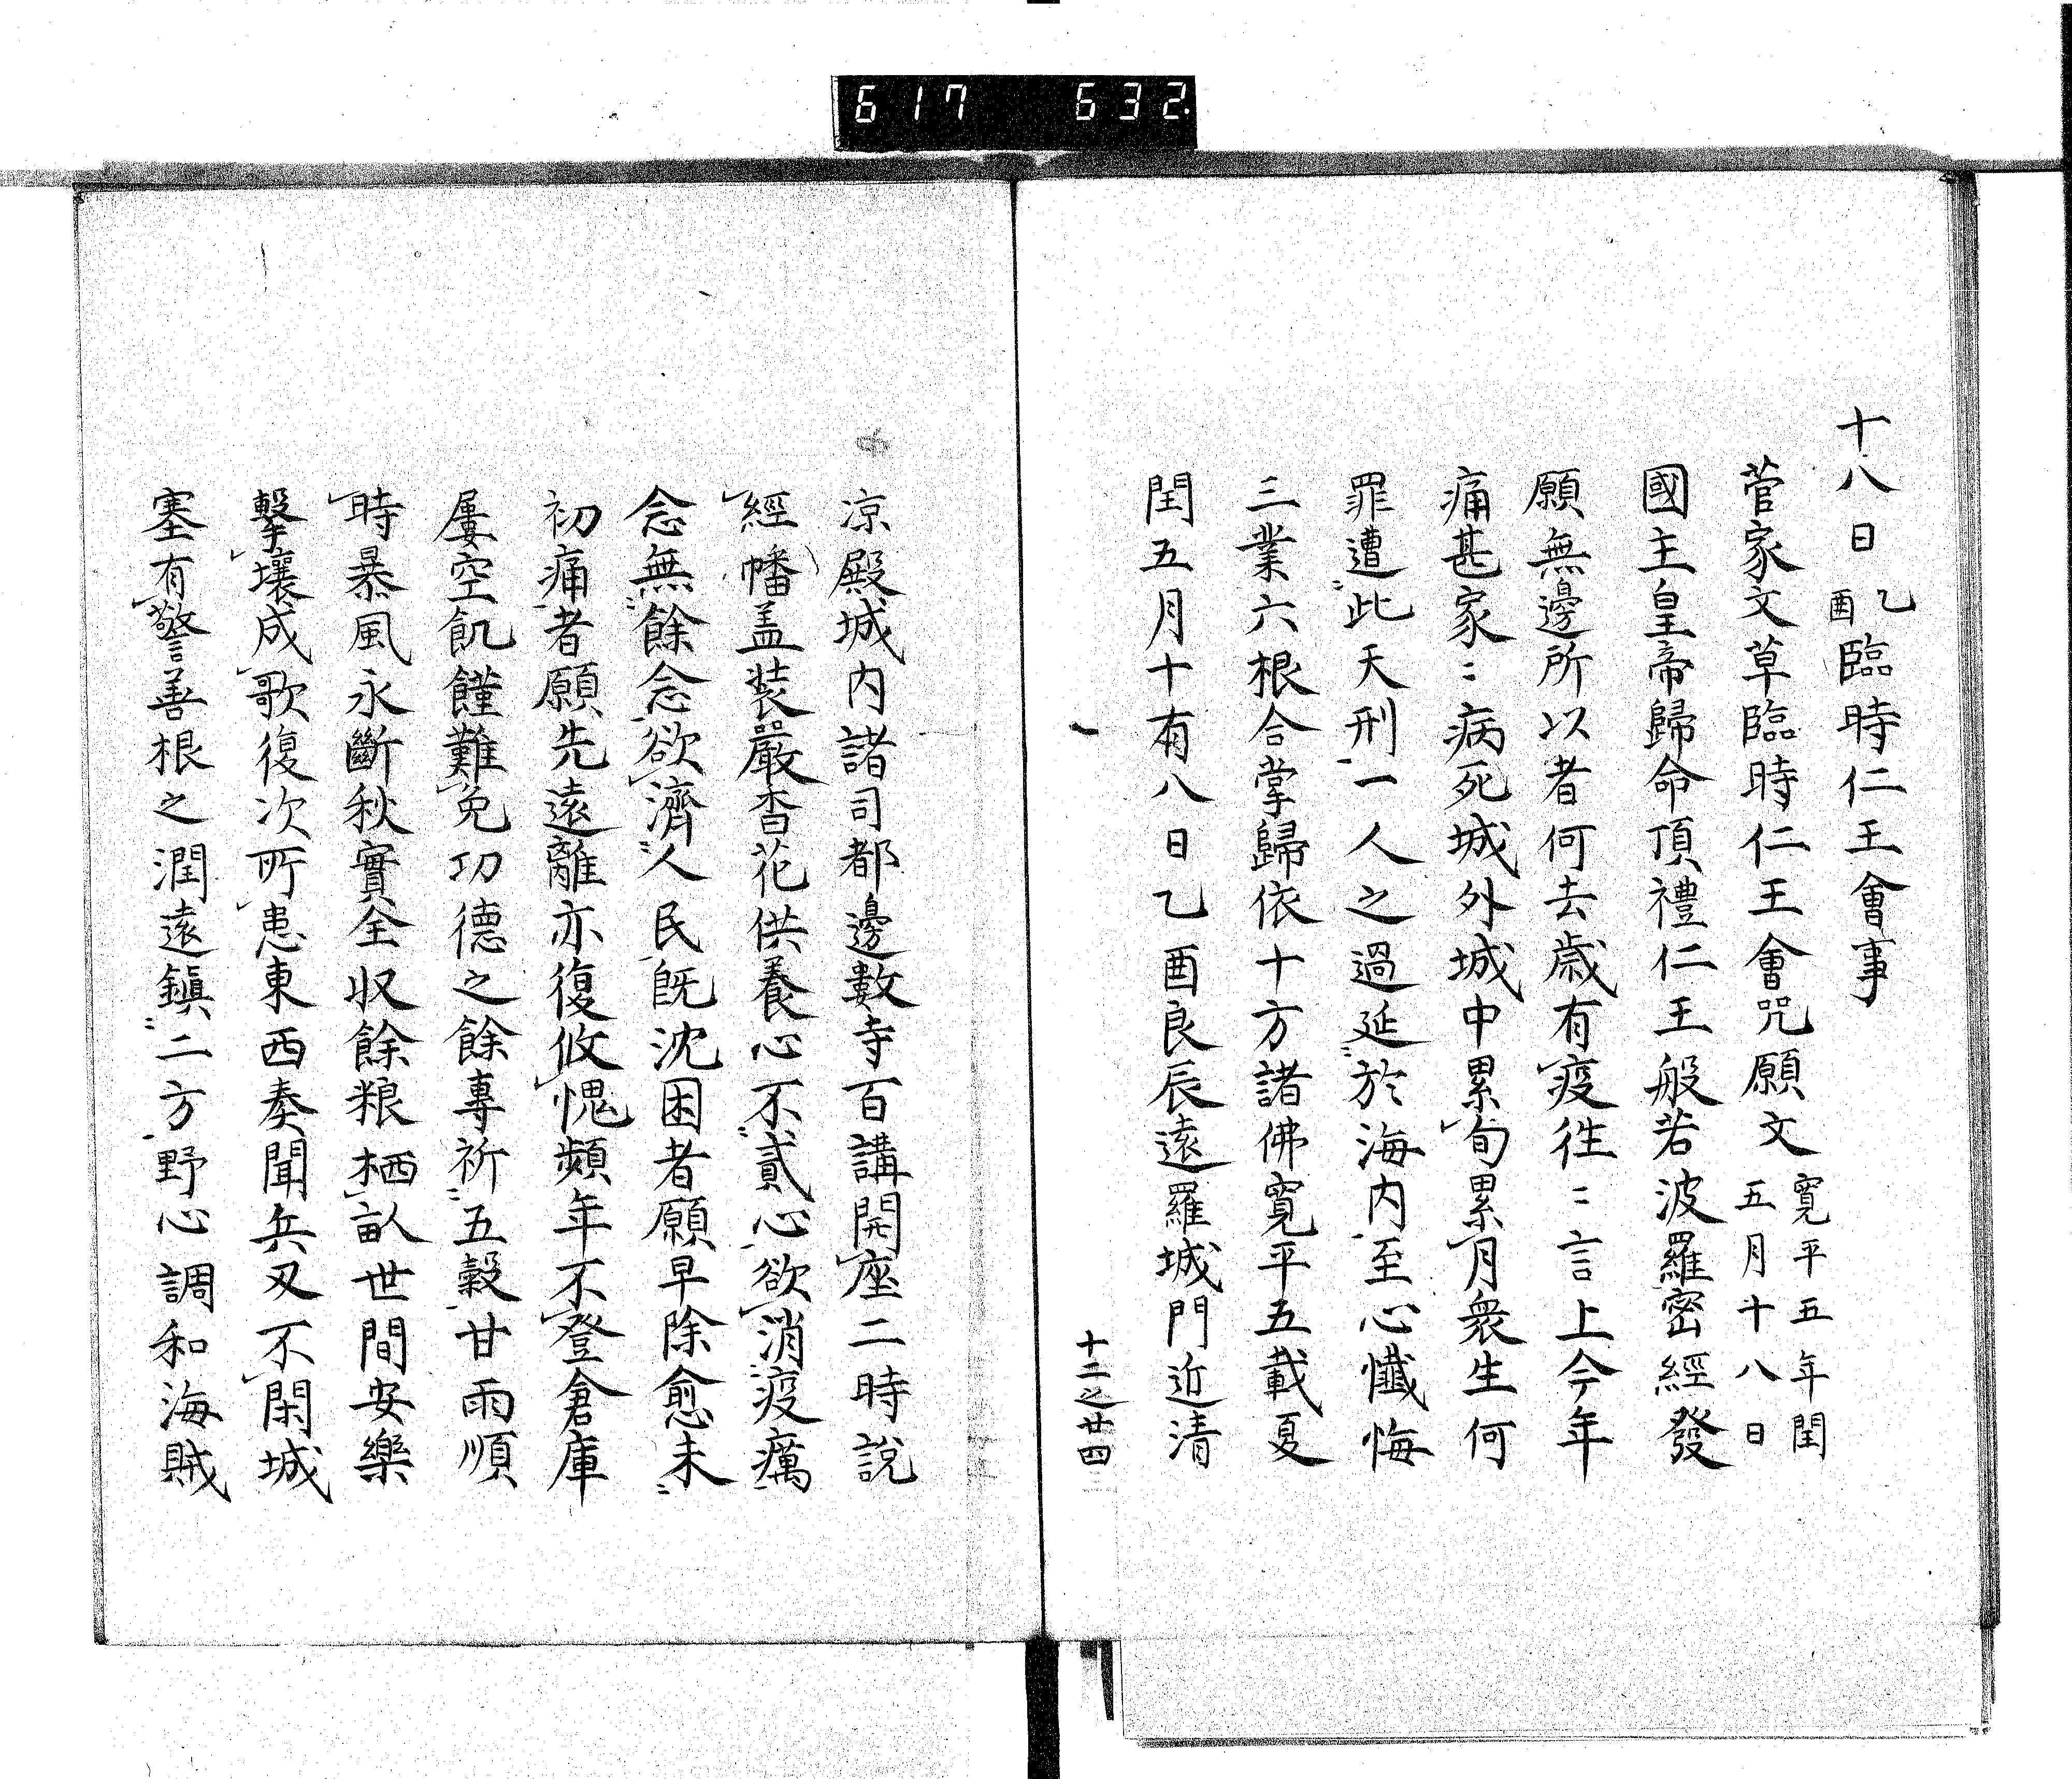 617 632
十八日乙酉臨時仁王會事
菅家文草臨時仁王會咒願文寬平五年閏五月十八日
國主皇帝歸命頂禮仁王般若波羅密經發
願無邊所以者何去歲有疫徃〻言上今年
痛甚家〻病死城外城中累旬累月衆生何
罪遭此天刑一人之過延於海内至心懺悔
三業六根合掌歸依十方諸佛寬平五載夏
閏五月十有八日乙酉良辰遠羅城門近清
十二之廿四
涼殿城内諸司都邊數寺百講開座二時說
經幡盖装嚴香花供養心不貳心欲消疫癘
念無餘念欲濟人民既沈困者願早除愈未
初痛者願先遠離亦復攸愧頻年不登倉庫
屢空飢饉難免功德之餘專祈五穀甘雨順
時暴風永斷秋實全収餘粮栖畝世間安樂
擊壤成歌復次所患東西奏聞兵又不閑城
塞有警善根之潤遠鎭二方野心調和海賊